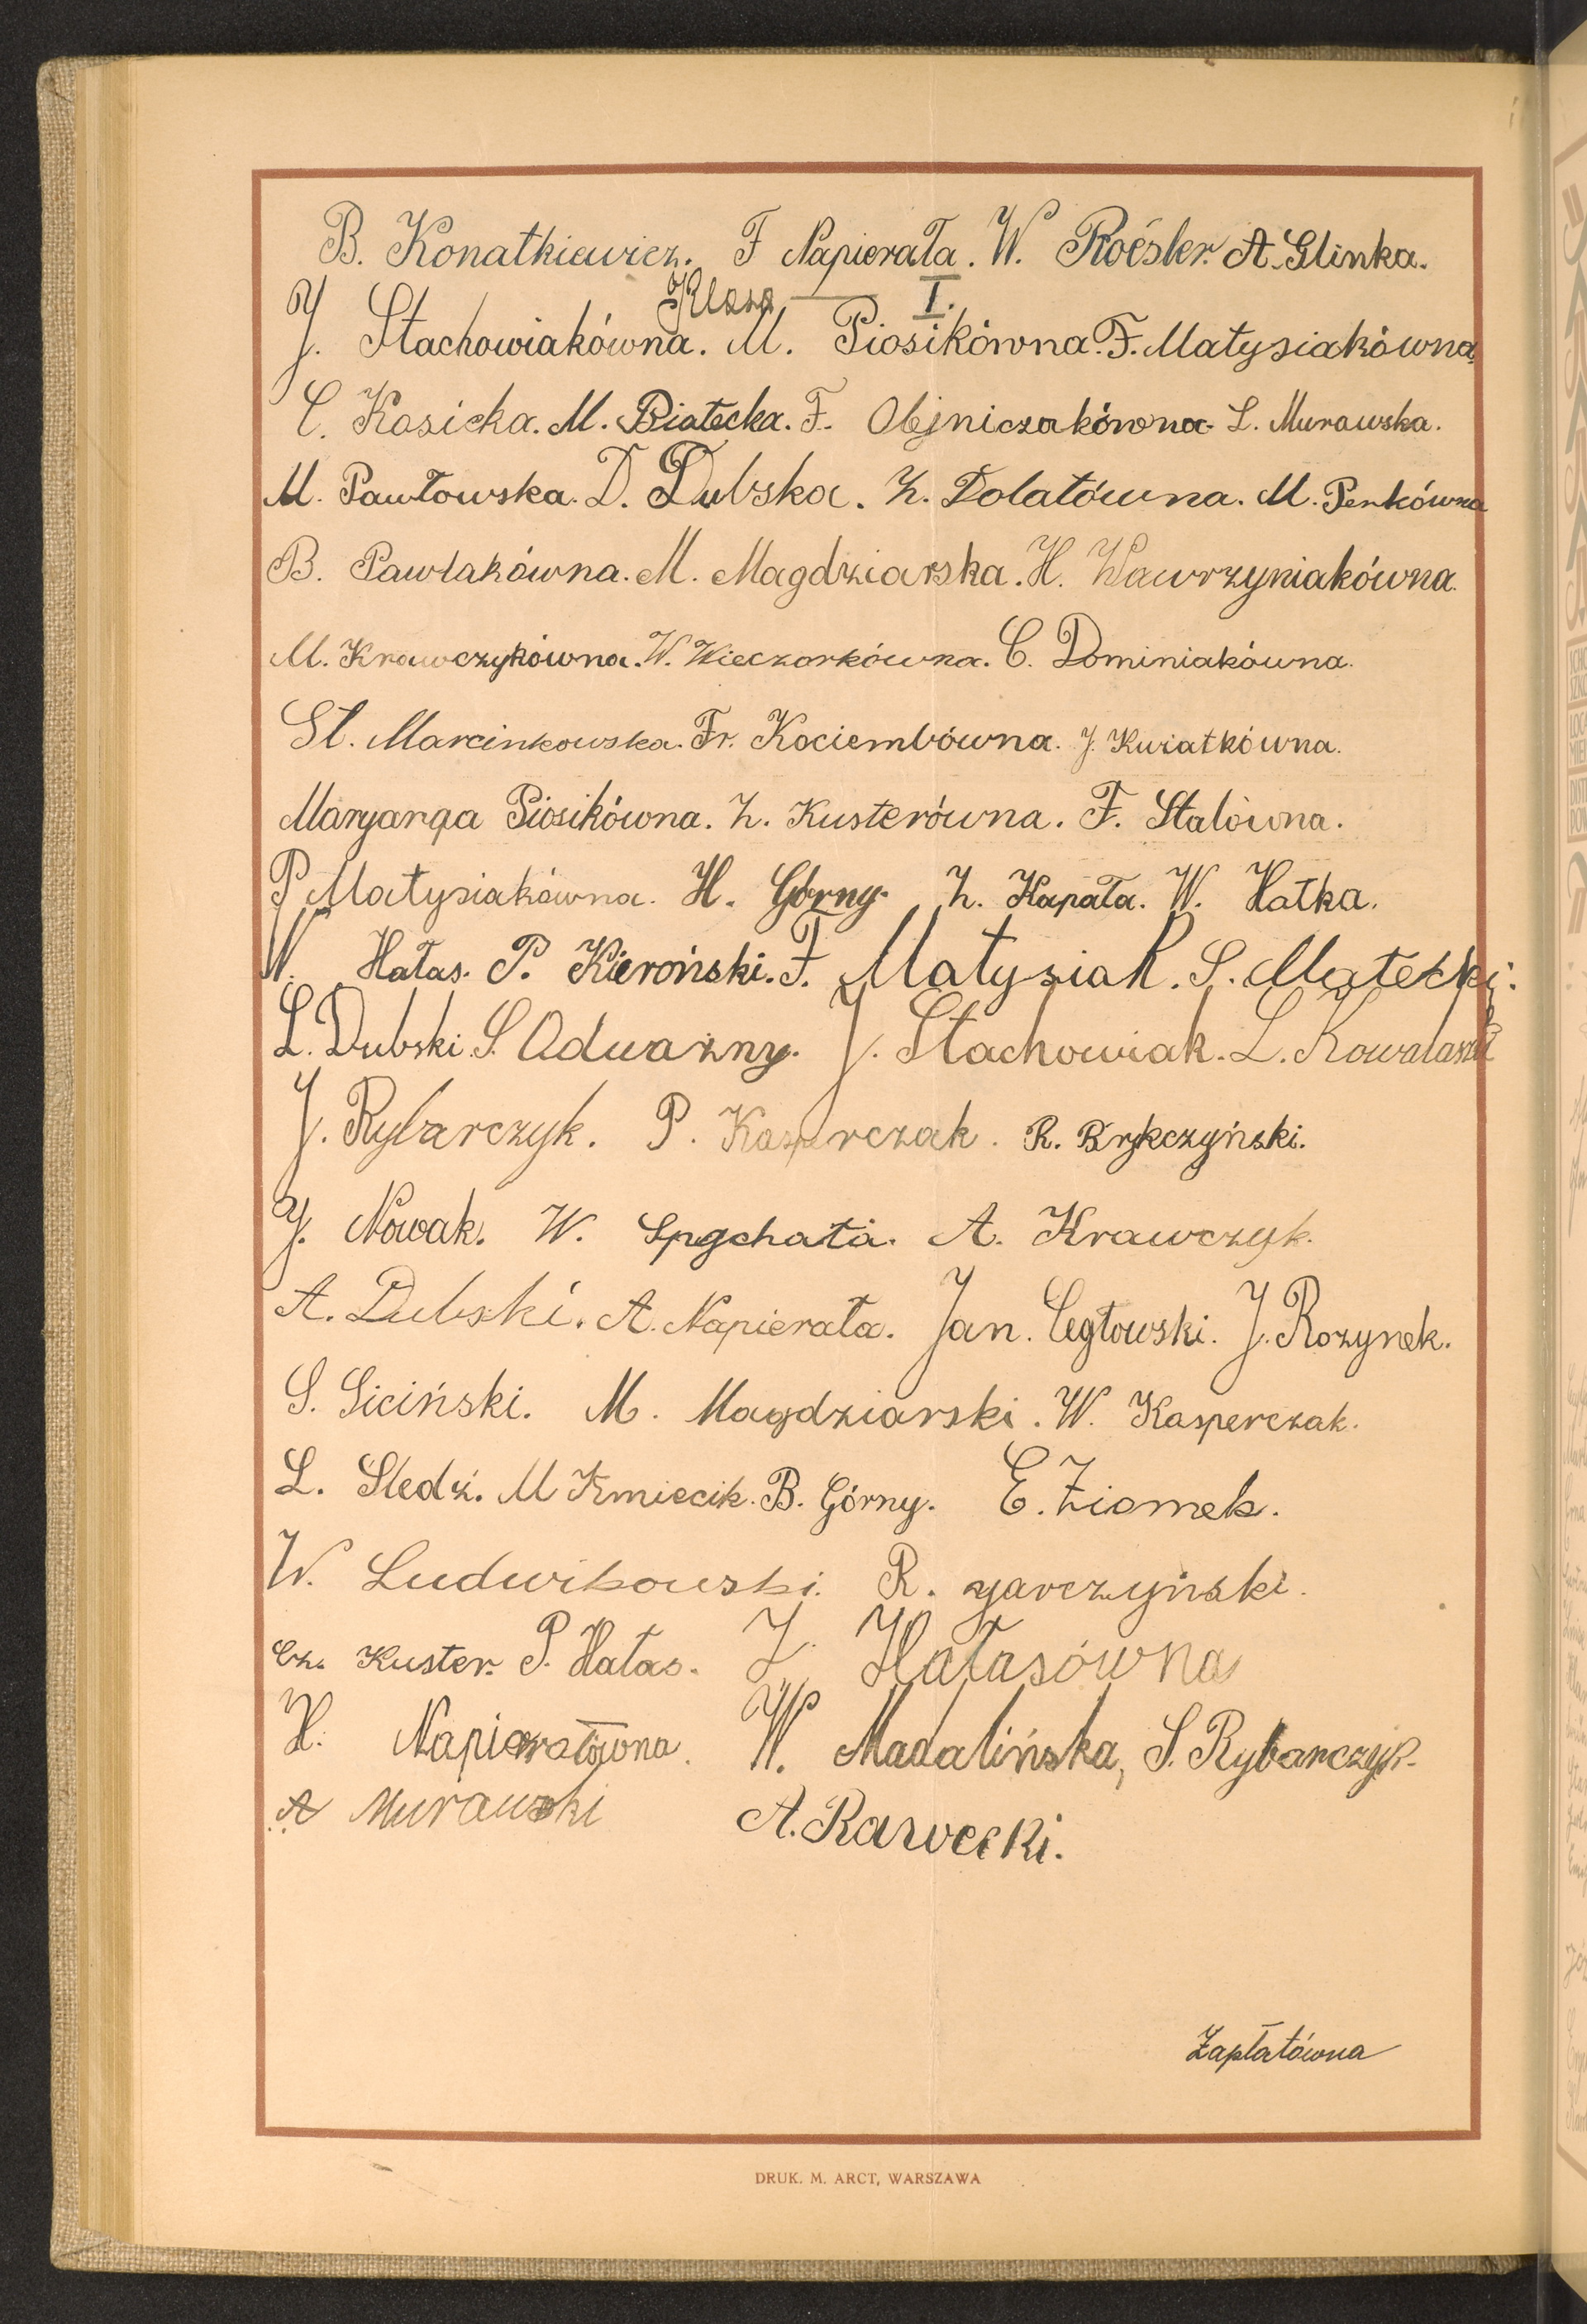 B. Konatkiewicz. F Napierała. W. Roesler. A. Glinka.
Klasa — I.
J. Stachowiakówna. M. Piosikówna. F. Matysiakówna.
C. Kosicka. M. Białecka. F. Olejniczakówna. L. Murawska.
M. Pawłowska. D. Dubska. Z. Dolatówna. M. Penkówna
B. Pawlakówna. M. Magdziarska. H. Wawrzyniakówna.
M. Krawczykówna. W. Wieczorkówna. C. Dominiakówna.
St. Marcinkowska. Fr. Kociembówna. J. Kwiatkówna.
Maryanna Piosikówna. Z. Kusterówna. F. Stalówna.
P Matysiakówna. H. Górny. Z. Kapała. W. Hałka.
W. Hałas. P. Kieroński. F. Matysiak. S. Małecki.
L. Dubski. S. Odważny. J. Stachowiak. L. Kowalaszek
J. Rybarczyk. P. Kasperczak. R. Brykczyński.
J. Nowak. W. Spychała. A. Krawczyk.
A. Dubski. A. Napierała. Jan. Cegłowski. J. Rozynek.
S. Siciński. M. Magdziarski. W. Kasperczak.
L. Śledź. M Kmiecik. B. Górny. E. Ziomek.
W. Ludwikowski. R. Garczyński.
Cz. Kuster. P. Hałas. Z. Hałasówna
H. Napierałówna. W. Madalińska, S. Rybarczyk.
A Murawski A. Rawecki.
Zapłatówna
DRUK. M. ARCT, WARSZAWA